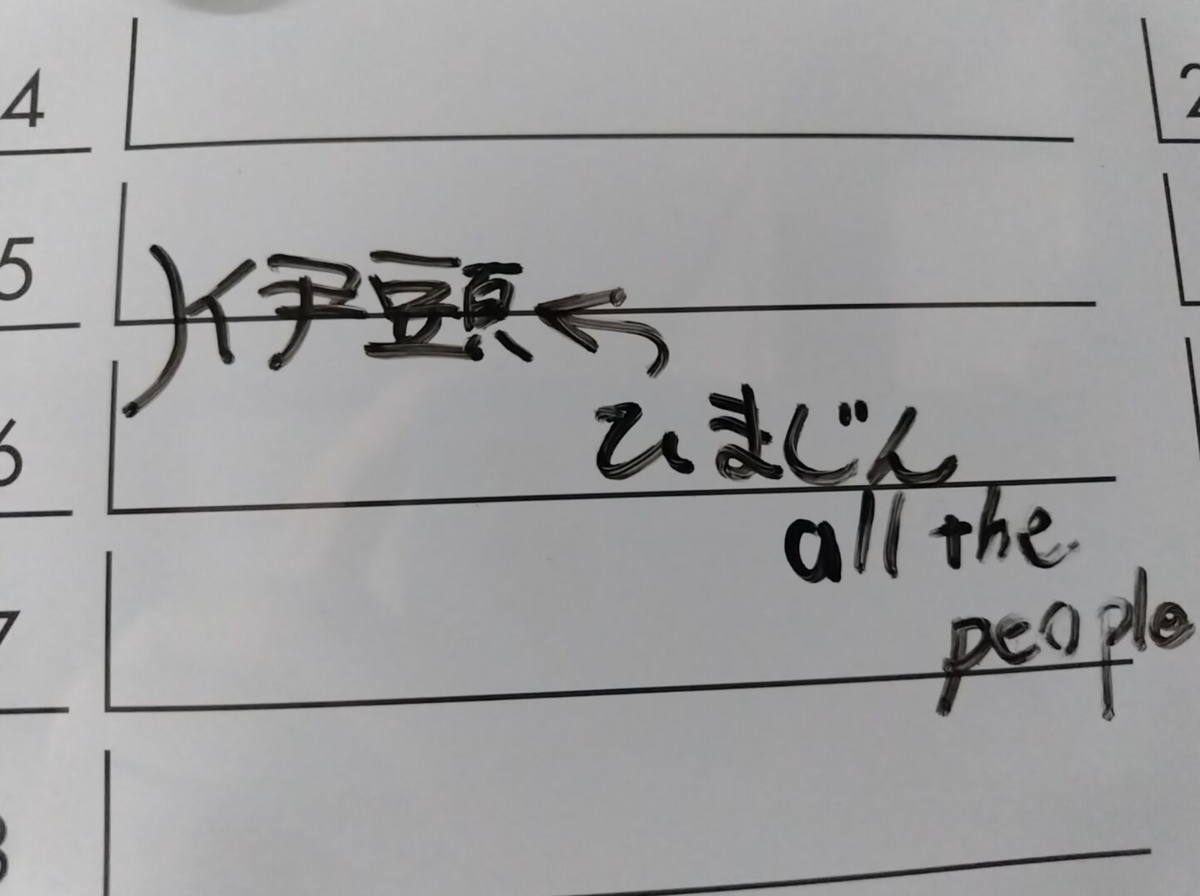 4
2
5
伊豆頁
ひまじん
6
all the
people
7
8